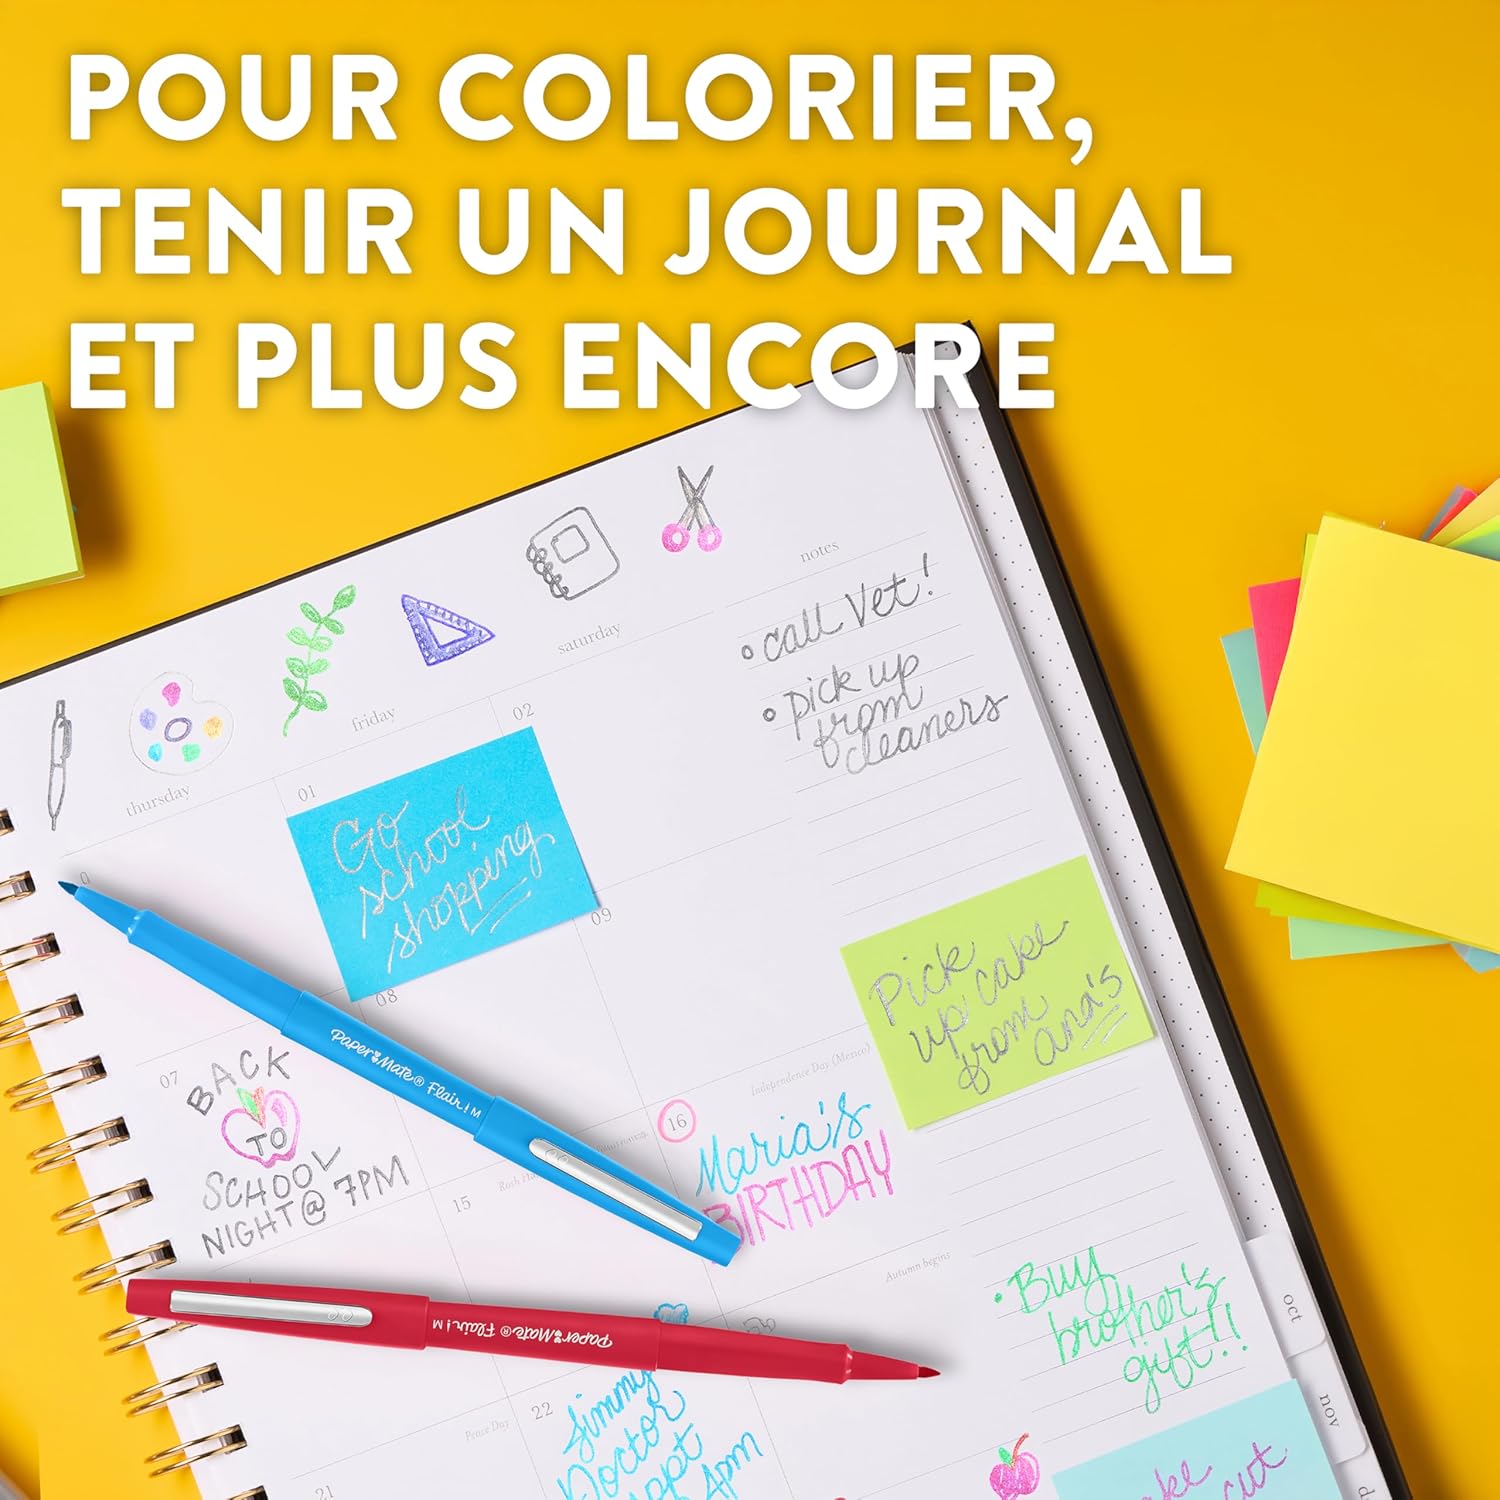 POUR COLORIER,
TENIR UN JOURNAL
ET PLUS ENCORE
notes
call Vet!
pick up
from
cleaners
saturday
friday
thursday
02
01
Go
school
shopping
09
08
07
Pick
up cake
from
ana's
BACK
TO
SCHOOL
NIGHT@ 7PM
Paper Mate® Flair! M
Independence Day (Mexico)
16
Maria's
BIRTHDAY
15
Autumn begins
Buy
brother's
gift!!
Paper Mate® Flair! M
oct
nov
d
Peace Day
22
Jimmy
Doctor
appt
4pm
21
cut